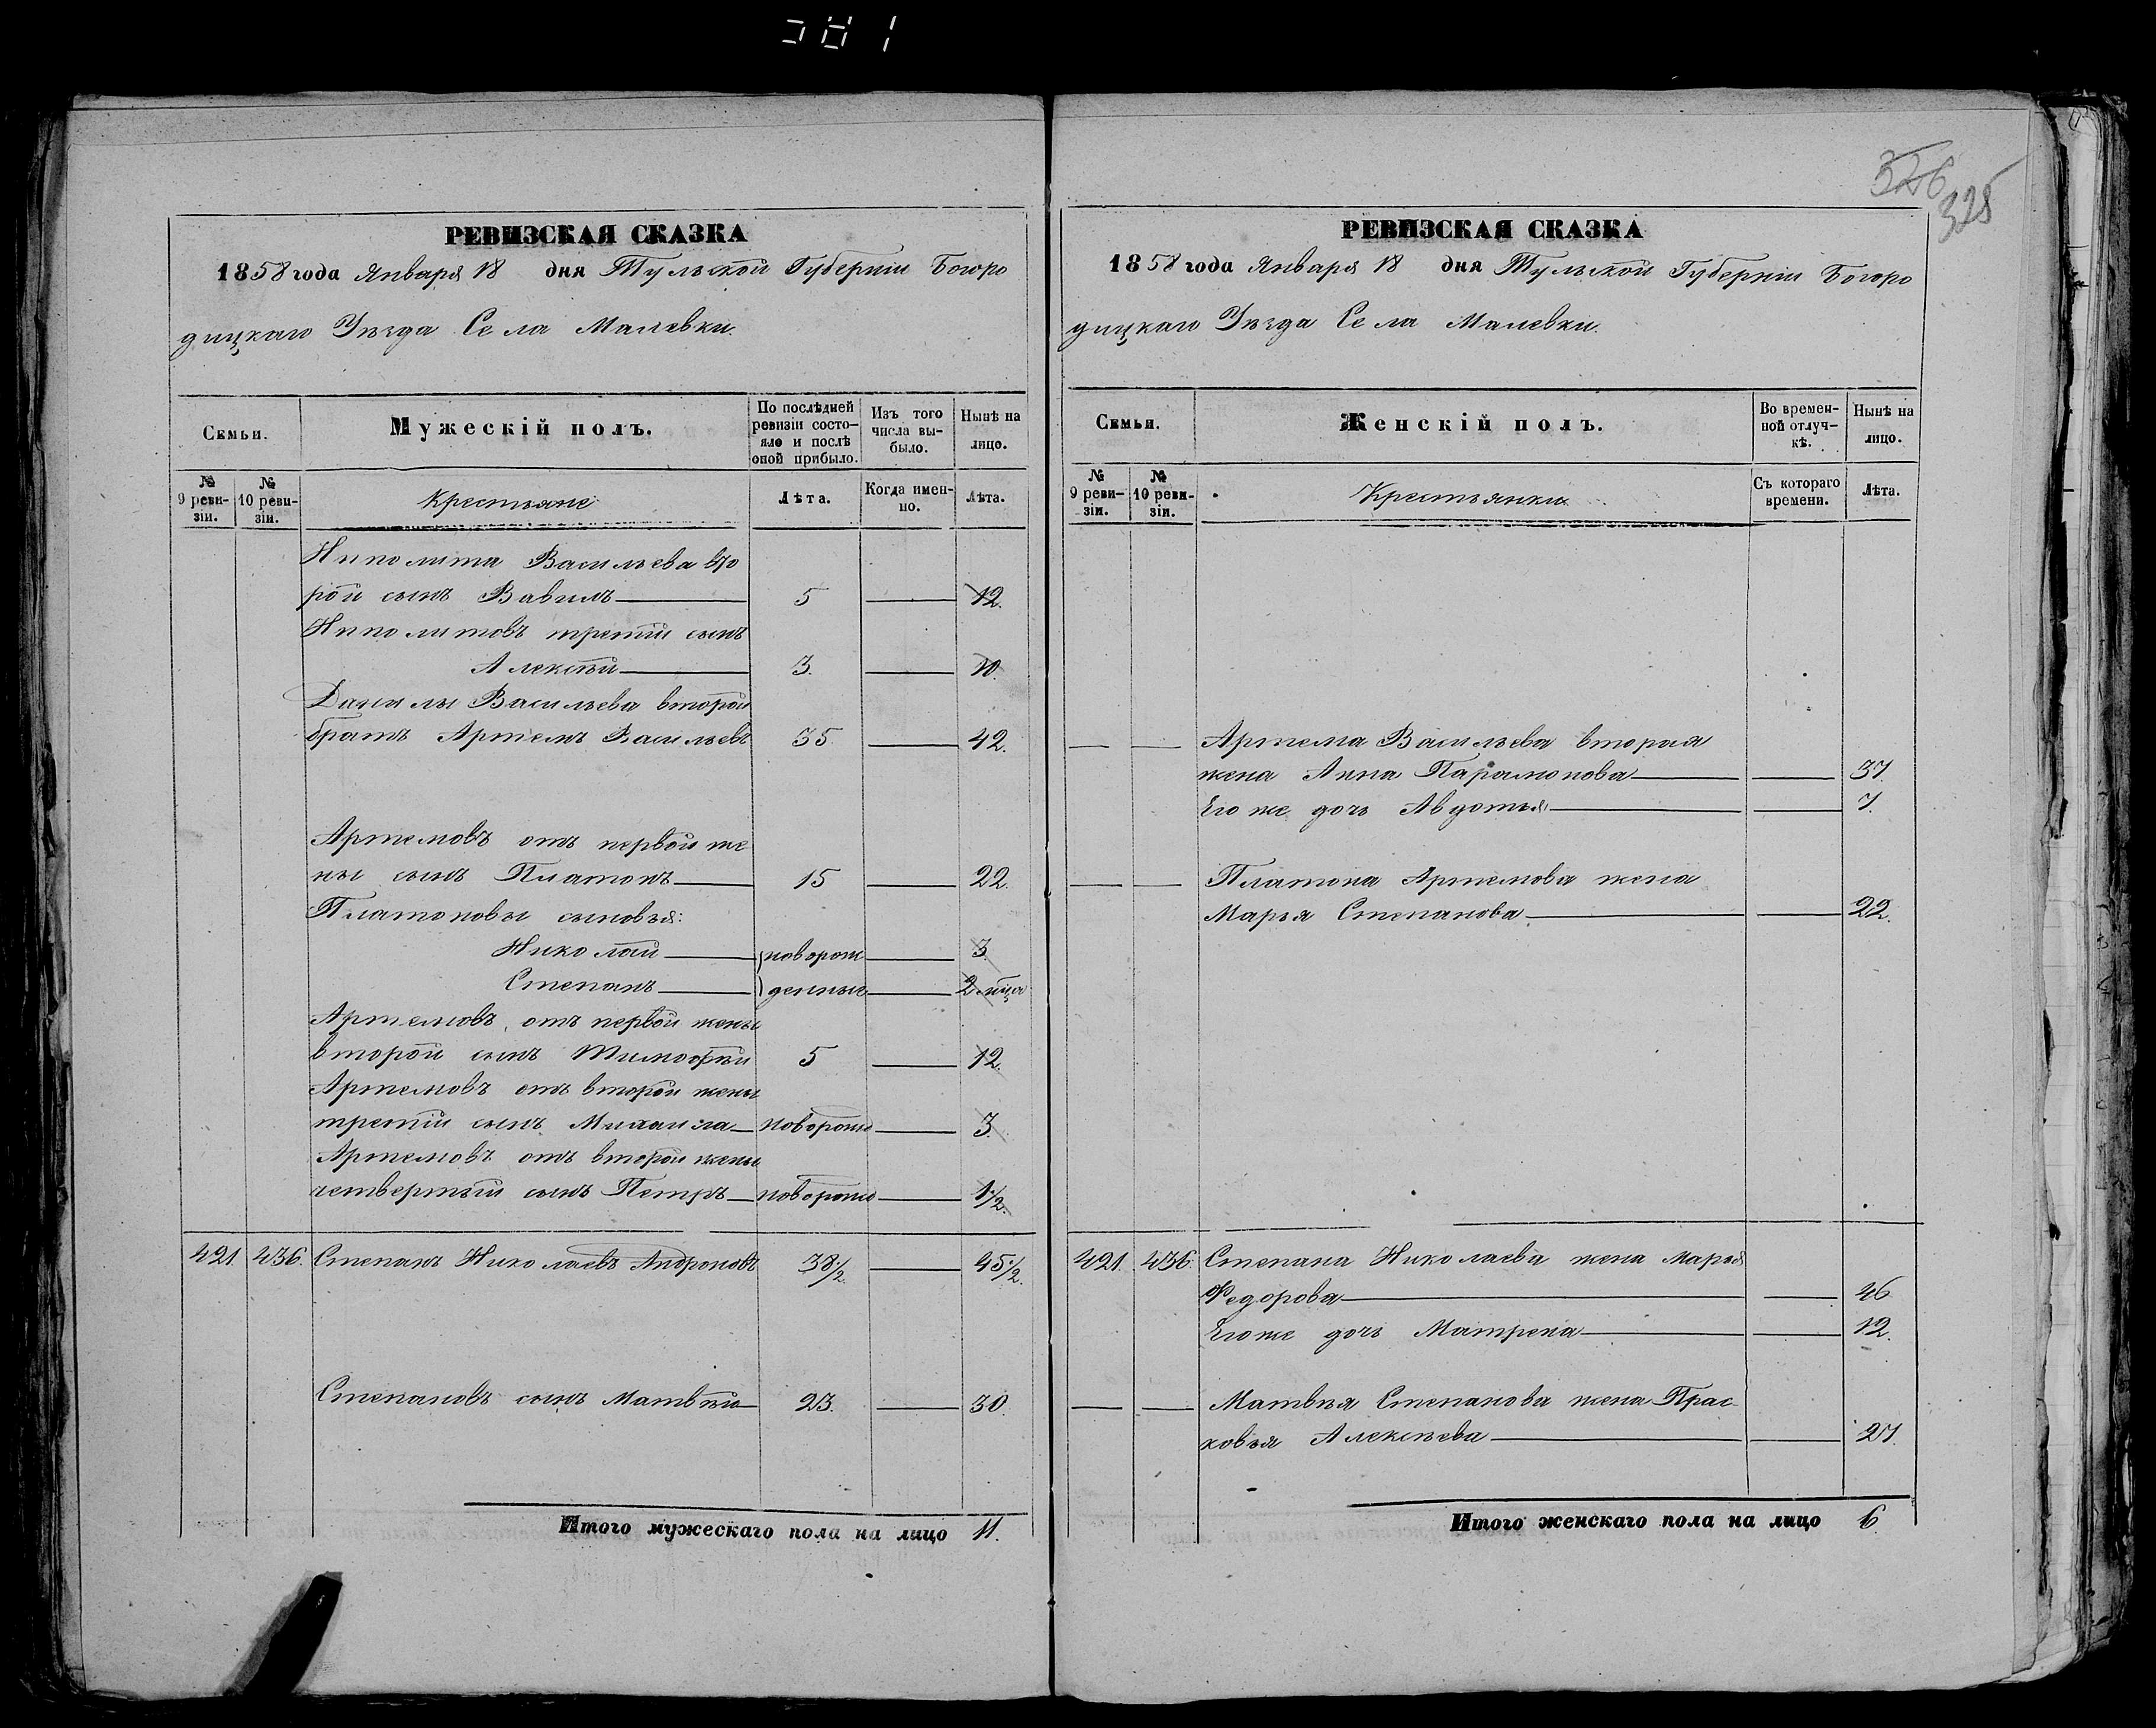 381
326
325
РЕВИЗСКАЯ СКАЗКА
1858 года Января 18 дня Тульской Губерніи Богоро
дицкаго Уѣзда Села Малевки.
Семьи.
Мужескій полъ.
По послѣдней ревизіи состояло и послѣ оной прибыло.
Изъ того числа выбыло.
Нынѣ на лицо.
№ 9 ревизіи.
№ 10 ревизіи.
Крестьяне
Лѣта.
Когда именно.
Лѣта.
Иполита Васильева вто
рой сынъ Вавилъ 5 12.
Иполитовъ третій сынъ
Алексѣй 3. 10.
Данилы Васильева второй
братъ Артемъ Васильевъ 35. 42.
Артемовъ отъ первой же
ны сынъ Платонъ 15 22.
Платоновы сыновья:
Николай новорож 3.
Степанъ денные 2 мѣца
Артемовъ отъ первой жены
второй сынъ Тимофѣй 5 12.
Артемовъ отъ второй жены
третій сынъ Михаила новорож 3.
Артемовъ отъ второй жены
четвертый сынъ Петръ новорож 1/2.
421. 436. Степанъ Николаевъ Андроновъ 38 1/2. 45 1/2.
Степановъ сынъ Матвѣй 23. 30.
Итого мужескаго пола на лицо 11.
РЕВИЗСКАЯ СКАЗКА
1858 года Января 18 дня Тульской Губерніи Богоро
дицкаго Уѣзда Села Малевки.
Семьи.
Женскій полъ.
Во временной отлучкѣ.
Нынѣ на лицо.
№ 9 ревизіи.
№ 10 ревизіи.
Крестьянки
Съ котораго времени.
Лѣта.
Артема Васильева вторая
жена Анна Парамонова 37.
Его же дочь Авдотья 7.
Платона Артемова жена
Марья Степанова 22.
421. 436. Степана Николаева жена Марья
Федорова 46
Его же дочь Матрена 12.
Матвѣя Степанова жена Прас
ковья Алексѣева 27.
Итого женскаго пола на лицо 6.